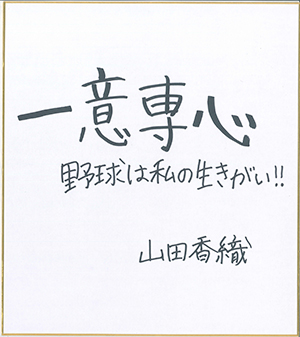 一意専心
野球は私の生きがい!!
山田香織